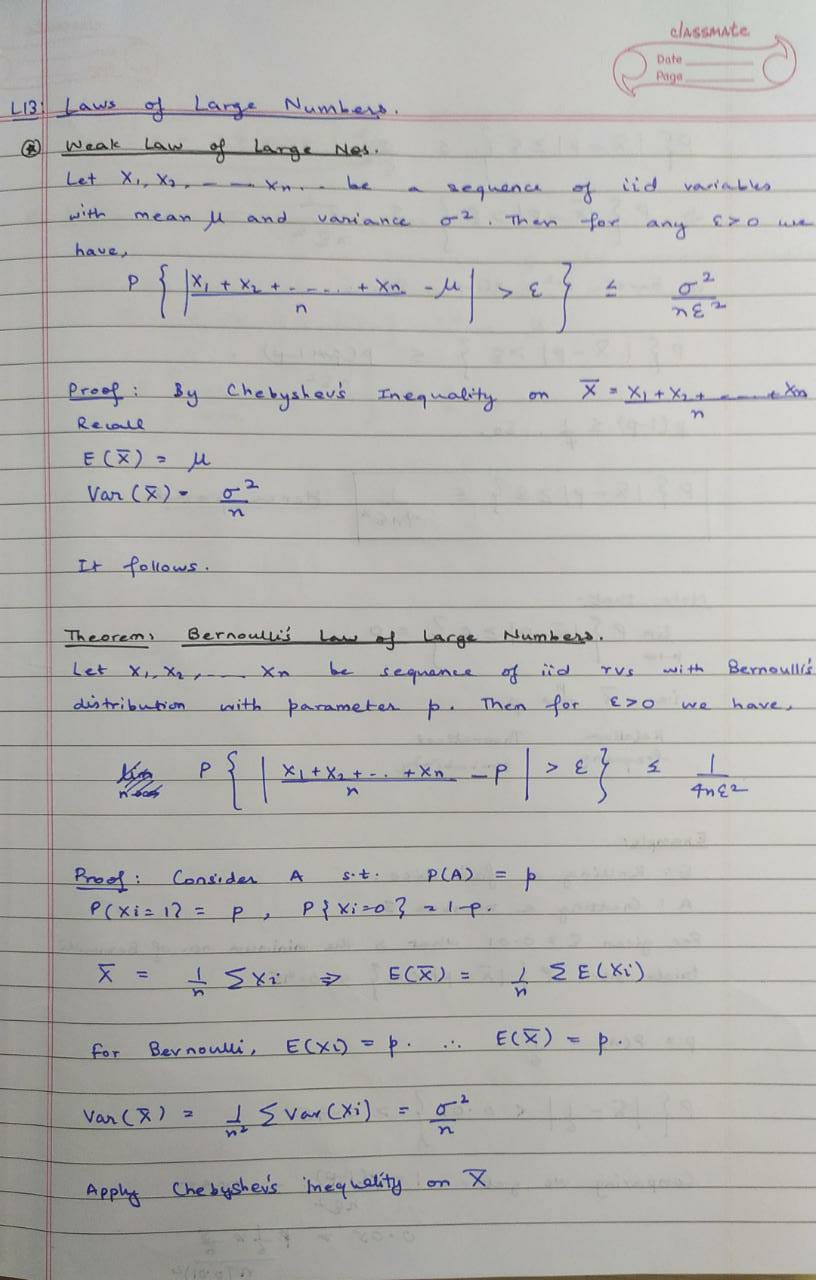 classmate
Date
Page
L13: Laws of Large Numbers.
⊛ Weak Law of Large Nos.
Let X₁, X₂, ---- Xn.. be a sequence of iid variables
with mean μ and variance σ². Then for any ε>0 we
have,
P { | (X₁ + X₂ + ..... + Xn)/n - μ | > ε } ≤ σ²/(nε²)
Proof: By Chebyshev's Inequality on X̄ = (X₁ + X₂ + ---- + Xn)/n
Recall
E(X̄) = μ
Var(X̄) = σ²/n
It follows.
Theorem: Bernoulli's Law of Large Numbers.
Let X₁, X₂, ---- Xn be sequence of iid rvs with Bernoulli's
distribution with parameter p. Then for ε>0 we have,
P { | (X₁ + X₂ + -.. + Xn)/n - p | > ε } ≤ 1/(4nε²)
Proof: Consider A s.t. P(A) = p
P(Xi = 1) = p, P{Xi=0} = 1-p.
X̄ = 1/n ΣXi ⇒ E(X̄) = 1/n ΣE(Xi)
for Bernoulli, E(Xi) = p. ∴ E(X̄) = p.
Var(X̄) = 1/n² ΣVar(Xi) = σ²/n
Apply Chebyshev's inequality on X̄